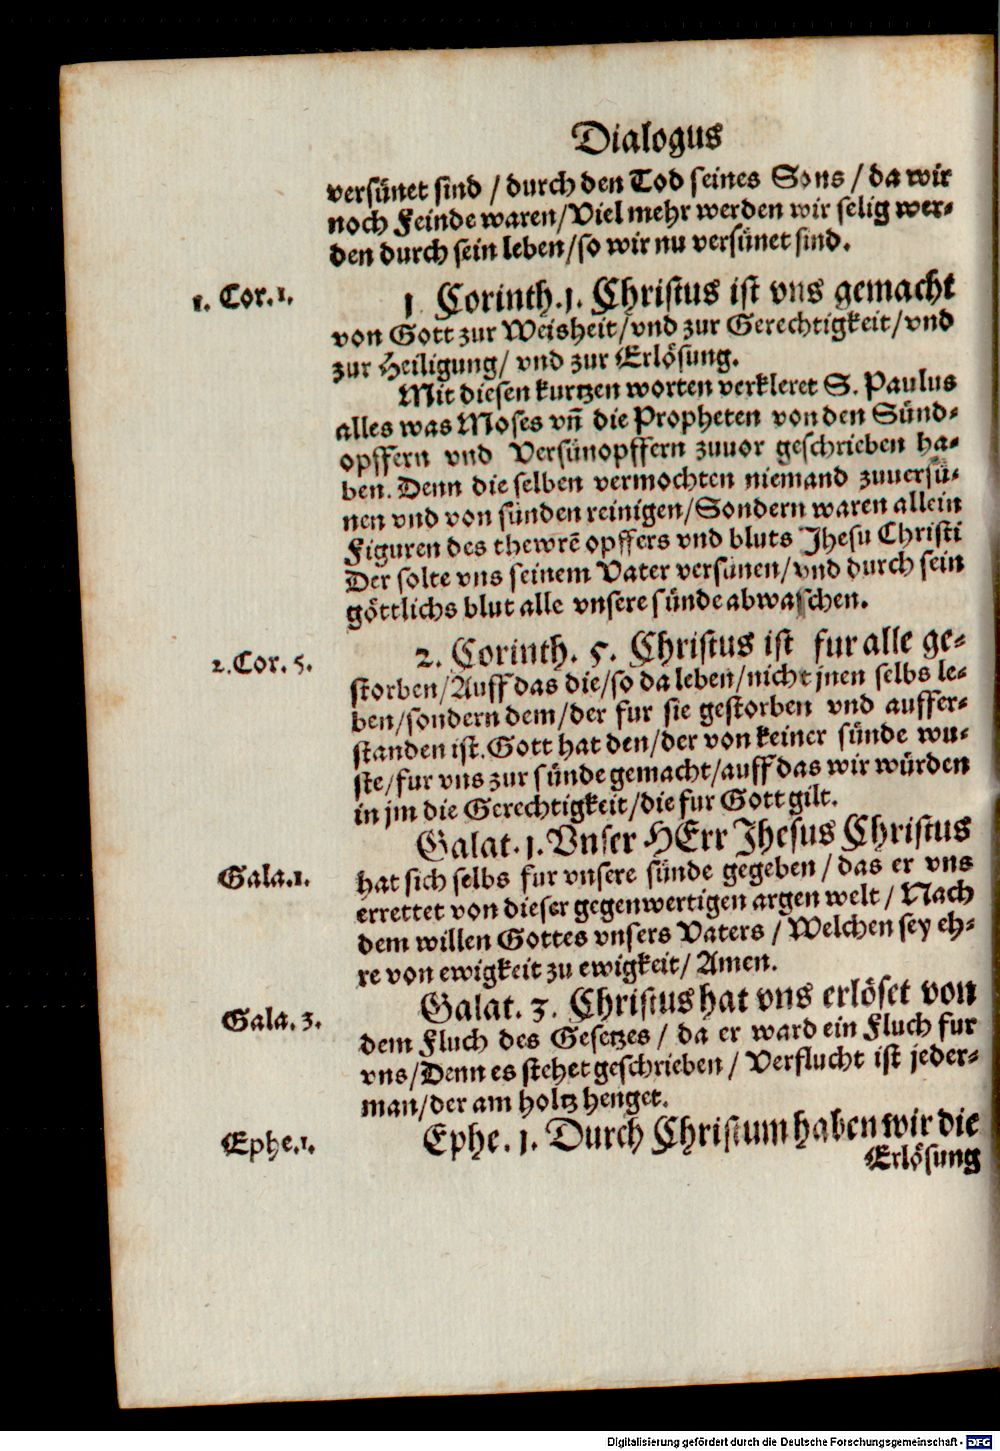 Dialogus
versünet sind / durch den Tod seines Sons / da wir
noch Feinde waren/Viel mehr werden wir selig wer-
den durch sein leben/so wir nu versünet sind.
1. Cor.1.
1 Corinth.1. Christus ist vns gemacht
von Gott zur Weisheit/vnd zur Gerechtigkeit/vnd
zur Heiligung/ vnd zur Erlösung.
Mit diesen kurtzen worten verkleret S. Paulus
alles was Moses vn̄ die Propheten von den Sünd-
opffern vnd Versünopffern zuuor geschrieben ha-
ben. Denn die selben vermochten niemand zuuersü-
nen vnd von sünden reinigen/Sondern waren allein
Figuren des thewrē opffers vnd bluts Jhesu Christi
Der solte vns seinem Vater versünen/vnd durch sein
göttlichs blut alle vnsere sünde abwaschen.
2.Cor. 5.
2. Corinth. 5. Christus ist fur alle ge-
storben/Auff das die/so da leben/nicht jnen selbs le-
ben/sondern dem/der fur sie gestorben vnd auffer-
standen ist.Gott hat den/der von keiner sünde wu-
ste/fur vns zur sünde gemacht/auff das wir würden
in jm die Gerechtigkeit/die fur Gott gilt.
Gala.1.
Galat.1.Vnser HErr Jhesus Christus
hat sich selbs fur vnsere sünde gegeben/das er vns
errettet von dieser gegenwertigen argen welt / Nach
dem willen Gottes vnsers Vaters / Welchen sey eh-
re von ewigkeit zu ewigkeit/ Amen.
Gala. 3.
Galat. 3. Christus hat vns erlöset von
dem Fluch des Gesetzes / da er ward ein Fluch fur
vns/Denn es stehet geschrieben / Verflucht ist jeder-
man/der am holtz henget.
Ephe.1.
Ephe. 1. Durch Christum haben wir die
Erlösung
Digitalisierung gefördert durch die Deutsche Forschungsgemeinschaft - DFG